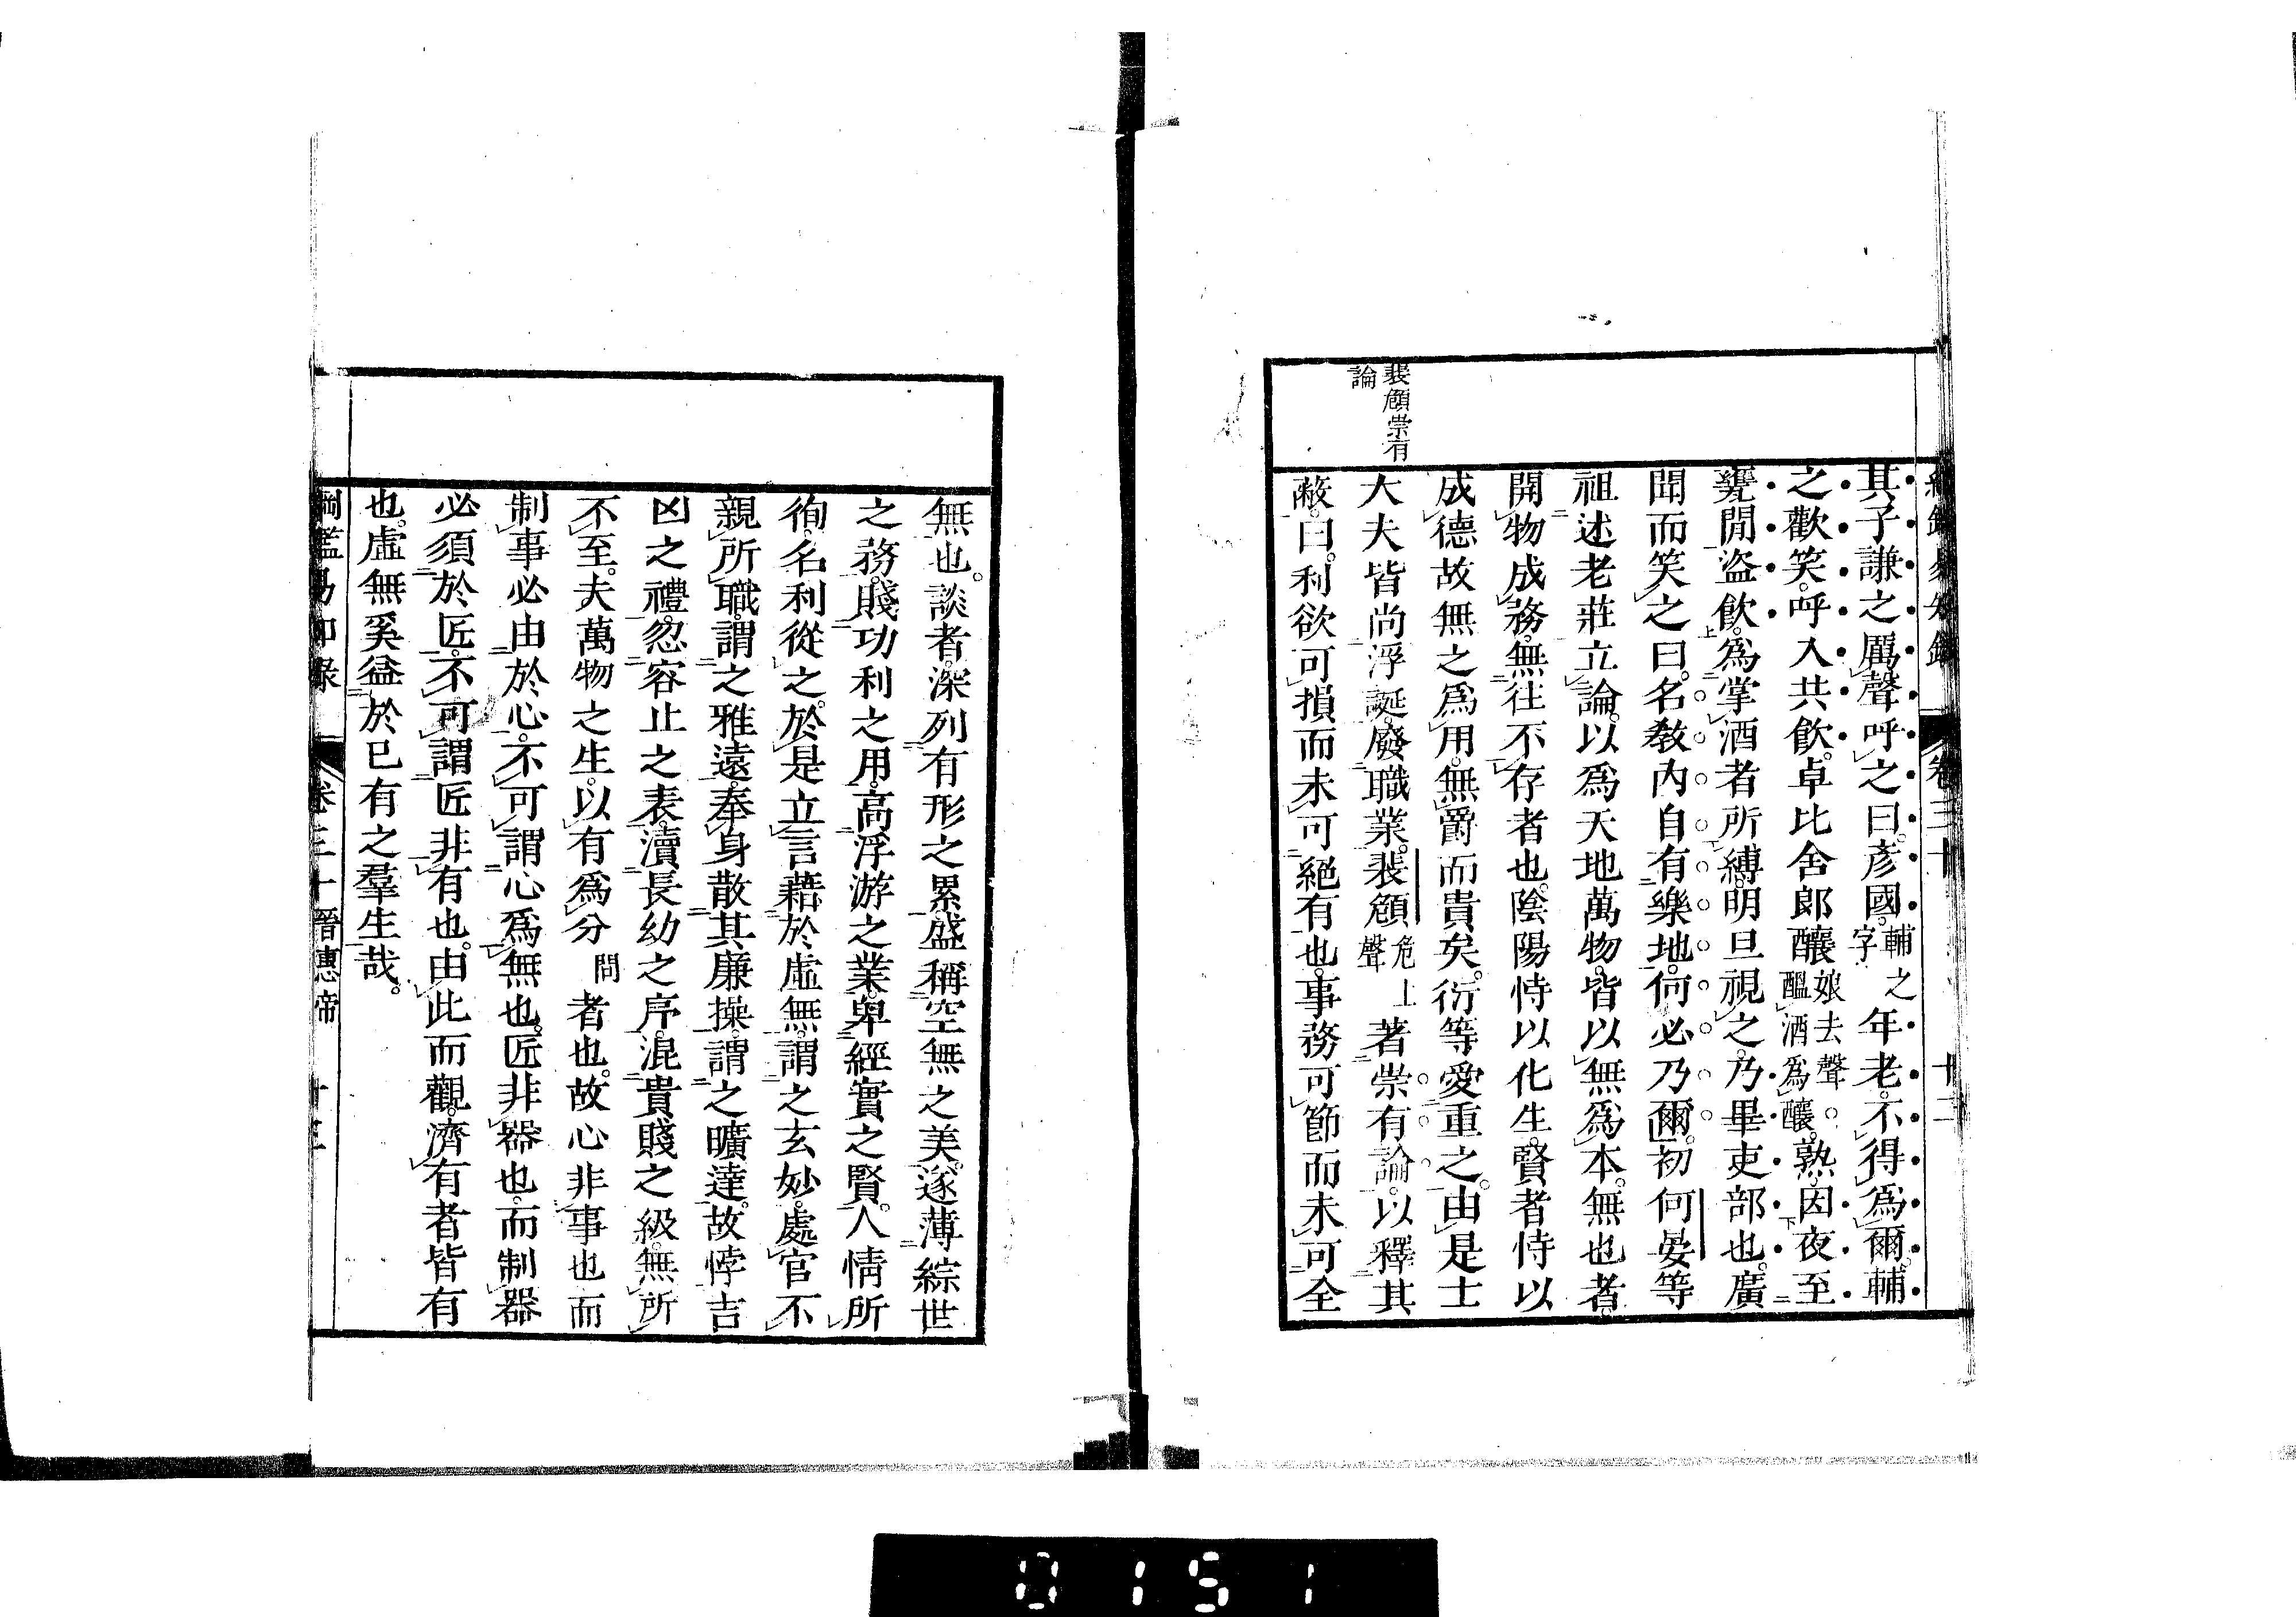 綱鑑易知錄 卷三十 十二
其子謙之厲聲呼之曰彥國輔之字年老不得爲爾輔
之歡笑呼入共飲卓比舍郎釀娘去聲○醞酒爲釀熟因夜至
甕閒盜飲爲掌酒者所縛明旦視之乃畢吏部也廣
聞而笑之曰名敎內自有樂地何必乃爾初何晏等
祖述老莊立論以爲天地萬物皆以無爲本無也者
開物成務無往不存者也陰陽恃以化生賢者恃以
成德故無之爲用無爵而貴矣衍等愛重之由是士
裴頠崇有論
大夫皆尚浮誕廢職業裴頠危上聲著崇有論以釋其
蔽曰利欲可損而未可絕有也事務可節而未可全
無也談者深列有形之累盛稱空無之美遂薄綜世
之務賤功利之用高浮游之業卑經實之賢人情所
徇名利從之於是立言藉於虛無謂之玄妙處官不
親所職謂之雅遠奉身散其廉操謂之曠達故悖吉
凶之禮忽容止之表瀆長幼之序混貴賤之級無所
不至夫萬物之生以有爲分問者也故心非事也而
制事必由於心不可謂心爲無也匠非器也而制器
必須於匠不可謂匠非有也由此而觀濟有者皆有
也虛無奚益於已有之羣生哉
綱鑑易知錄 卷三十晉惠帝 十三
0151